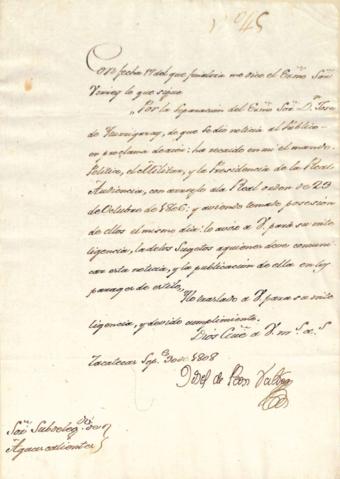 Con fecha 17 del que finaliza me dice el Exmo Sor
Virrey lo que sigue
"Por la separacion del Exmo Sor Dn Jose
de Yturrigaray, de que se dio noticia al Publico
en proclama de : ha recaido en mi el mando
Politico, el Militar, y la Presidencia de la Real
Audiencia, con arreglo a la Real orden de 29
de Octubre de 1806; y aviendo tomado posesion
de ellos el mismo dia: lo aviso a V. para su inte
ligencia, la de los Sugetos a quienes deve comuni
car esta noticia, y la publicacion de ella en los
parages de estilo,,
Lo traslado a V. para su inte
ligencia, y devido cumplimiento.
Dios Gue a V. m.s a.s
Zacatecas Sepe 30 de 1808
Josef de Peon Valdes
Sor Subdelegdo de
Aguascalientes